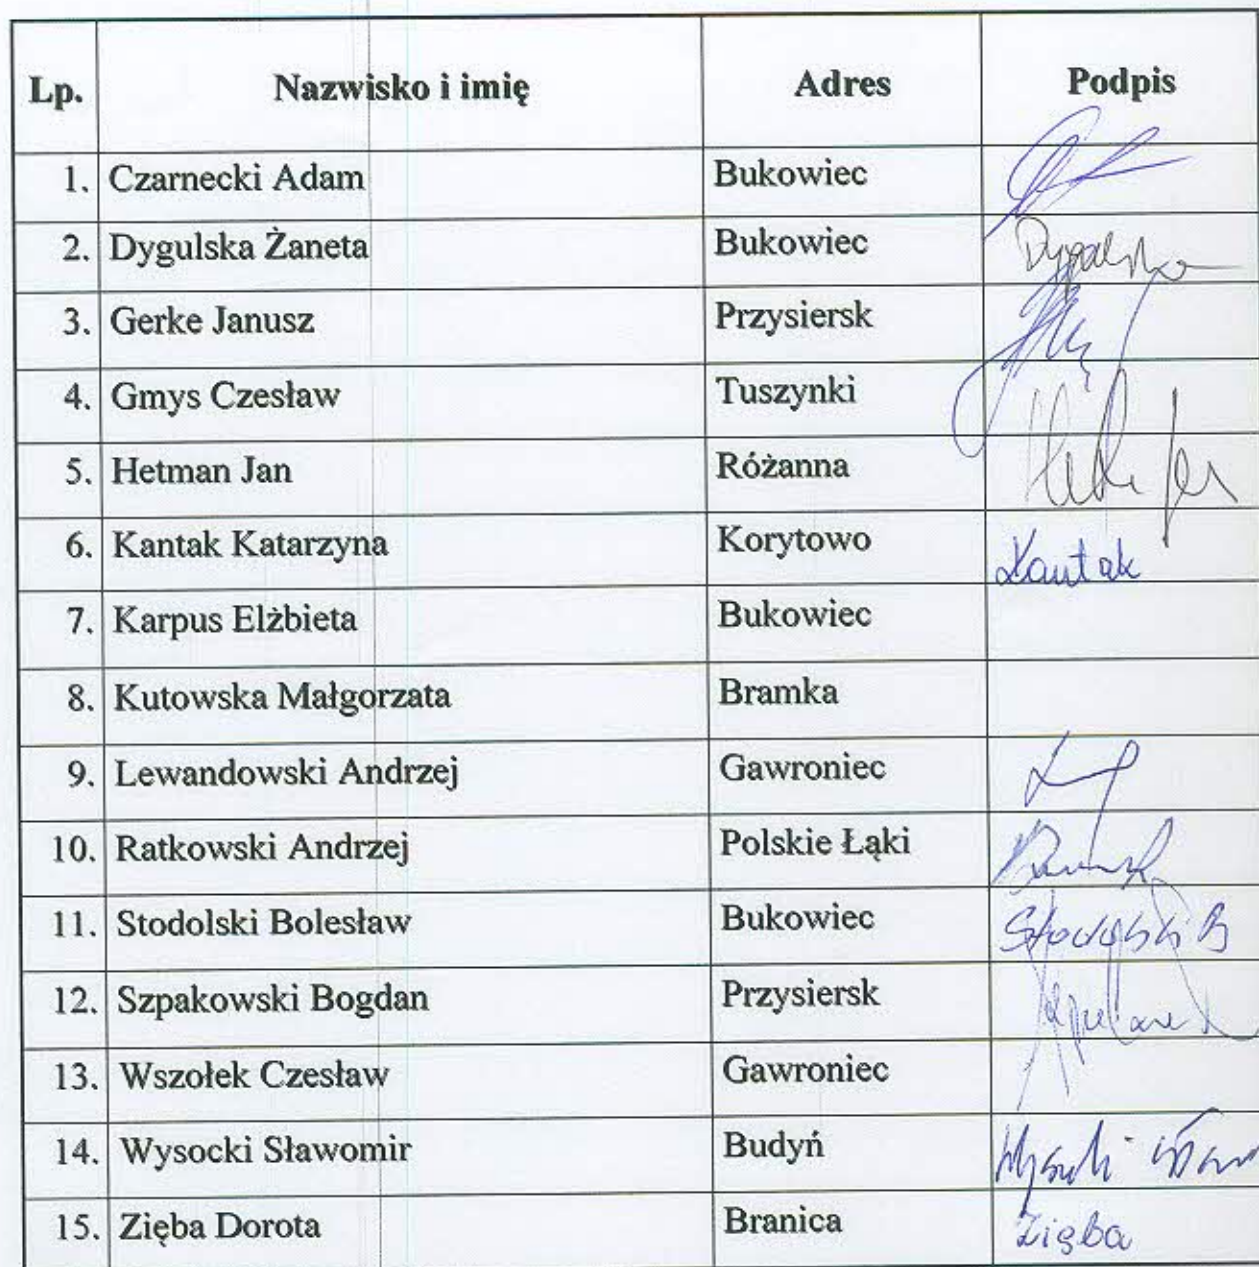 Lp. Nazwisko i imię Adres Podpis
1. Czarnecki Adam Bukowiec
2. Dygulska Żaneta Bukowiec Dygulska
3. Gerke Janusz Przysiersk
4. Gmys Czesław Tuszynki
5. Hetman Jan Różanna
6. Kantak Katarzyna Korytowo Kantak
7. Karpus Elżbieta Bukowiec
8. Kutowska Małgorzata Bramka
9. Lewandowski Andrzej Gawroniec
10. Ratkowski Andrzej Polskie Łąki
11. Stodolski Bolesław Bukowiec Stodolski B
12. Szpakowski Bogdan Przysiersk
13. Wszołek Czesław Gawroniec
14. Wysocki Sławomir Budyń
15. Zięba Dorota Branica Zięba